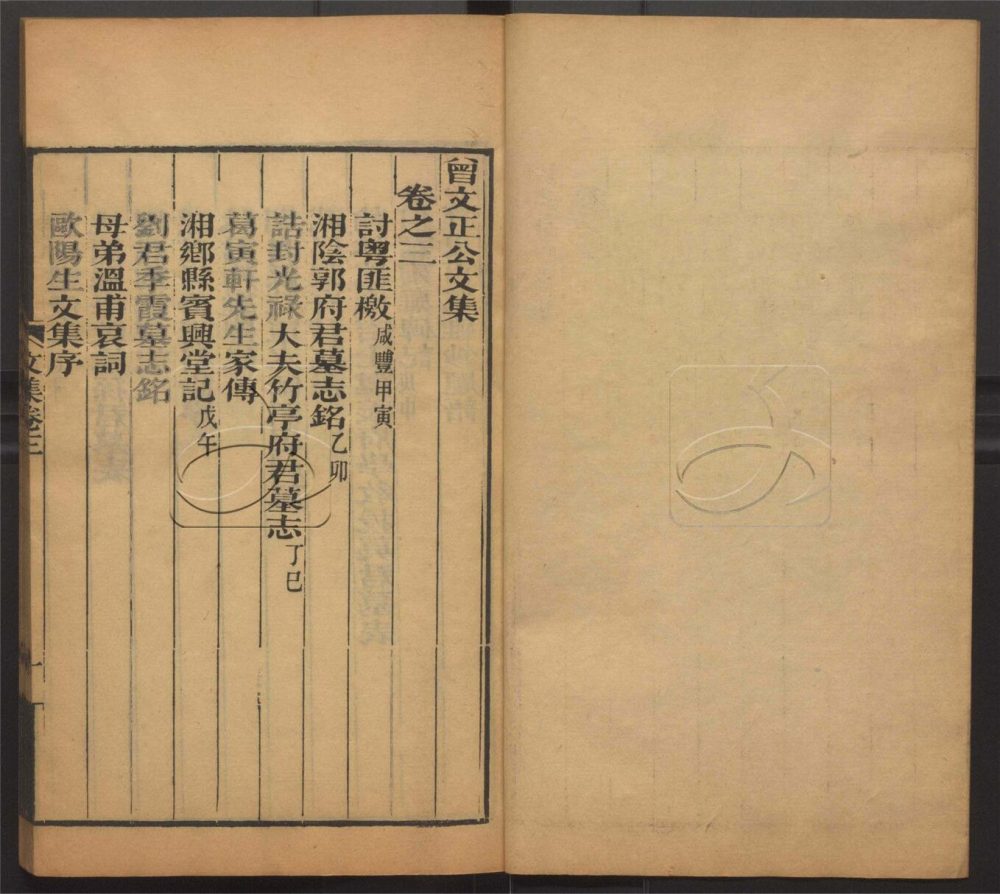 曾文正公文集
卷之三
討粤匪檄咸豐甲寅
湘陰郭府君墓志銘乙卯
誥封光祿大夫竹亭府君墓志丁巳
葛寅軒先生家傳
湘鄕縣賓興堂記戊午
劉君季霞墓志銘
母弟溫甫哀詞
歐陽生文集序
文集卷三
一